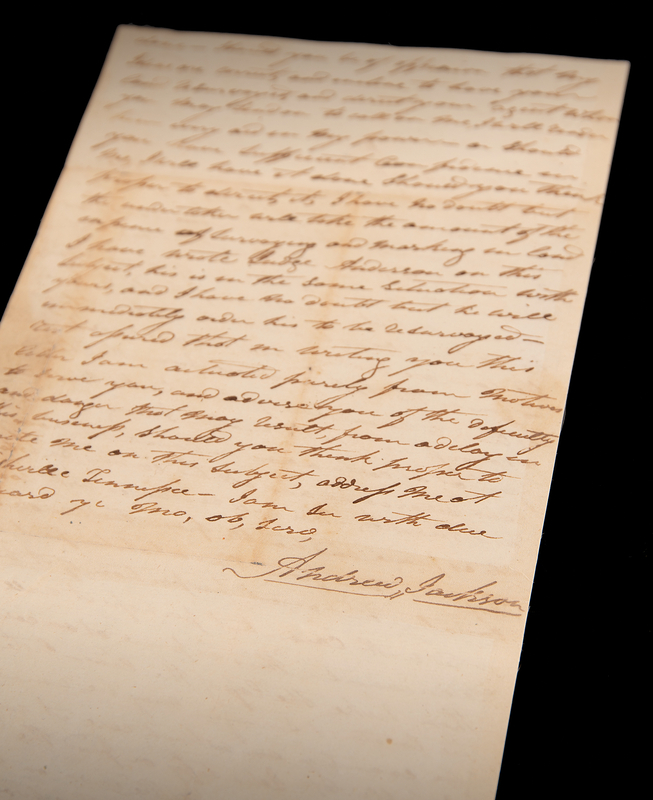 you in my opinion that my
and means to have your
and afterwards and
you may
any aid in my power or should
you have sufficient confidence in
me will have it done should you think
proper to direct it, I have no doubt but
the undertaker will take the amount of the
expence of surveying and marking in land
I have wrote Judge Anderson on this
subject, his is in the same situation with
yours, and I have no doubt but he will
immediately order his to be resurveyed—
rest assured that in writing you this
letter I am actuated purely from motives
to serve you, and advise you of the difficulty
and danger that may result, from a delay in
this business, should you think proper to
write me on this subject, address me at
Tennessee— I am Sir with due
regard yr Mo, ob, Serv,
Andrew Jackson